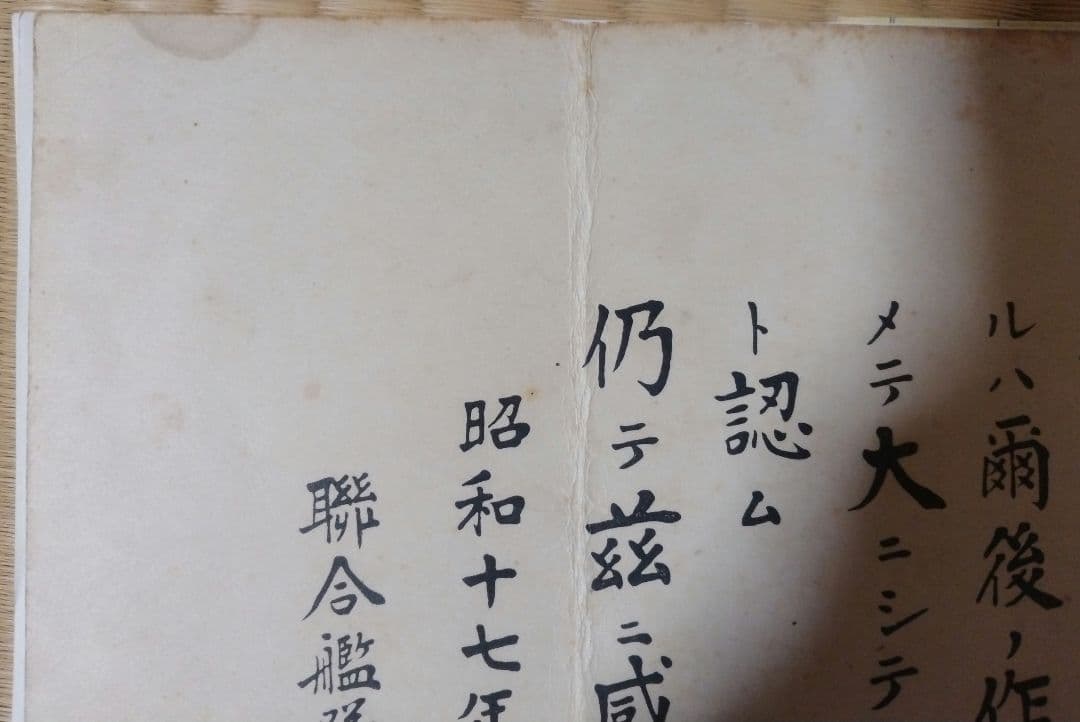 ルハ爾後ノ作
メテ大ニシテ
ト認ム
仍テ茲ニ感
昭和十七年
聯合艦隊